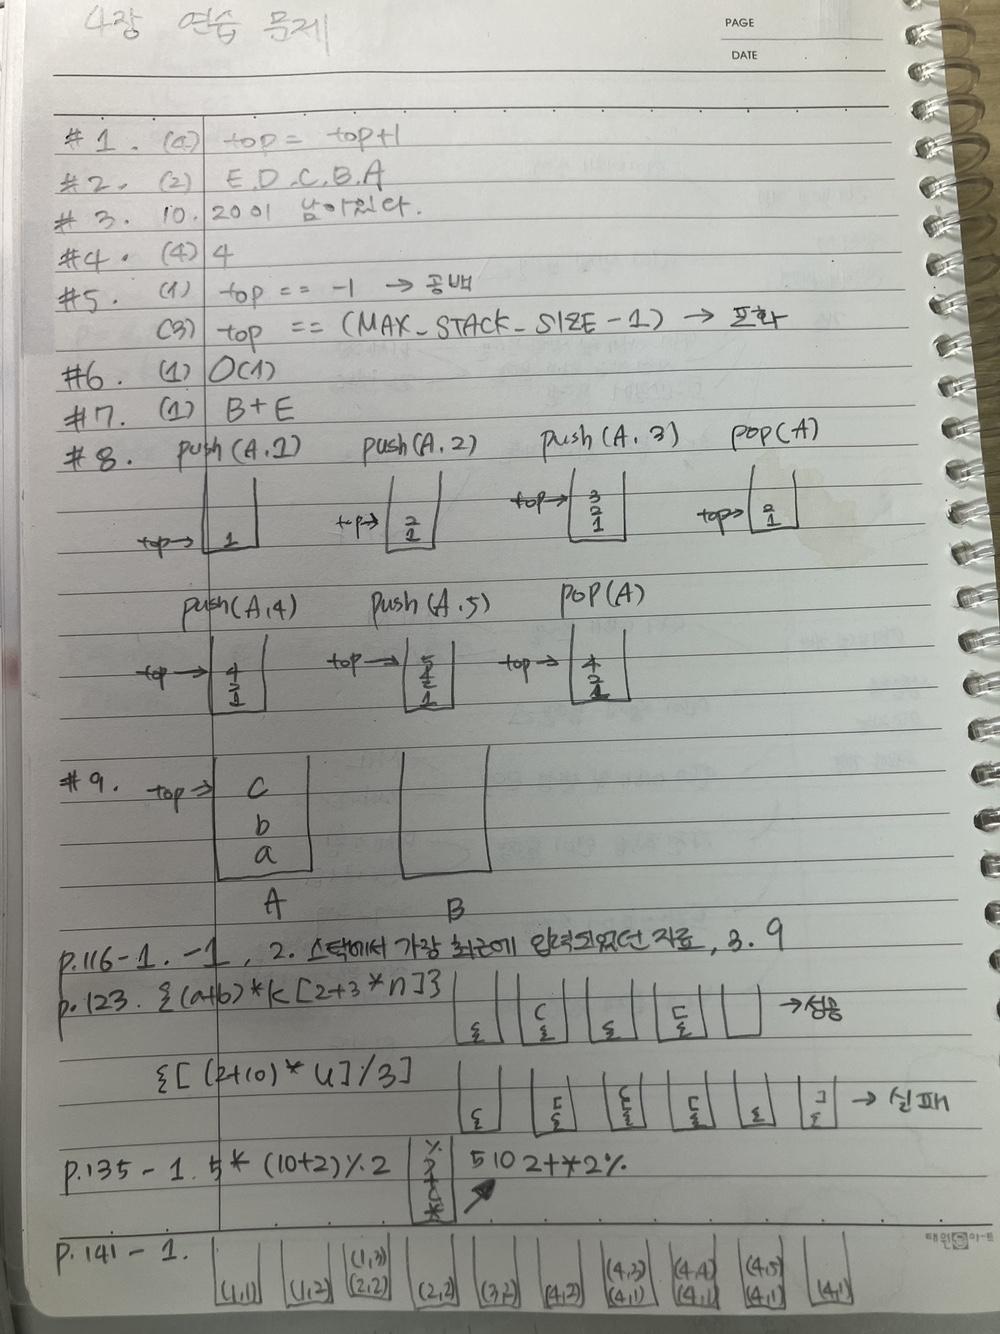 4장 연습 문제
PAGE
DATE
#1. (4) top = top+1
#2. (2) E.D.C.B.A
#3. 10. 20이 남아있다.
#4. (4) 4
#5. (1) top == -1 → 공백
(3) top == (MAX_STACK_SIZE-1) → 포화
#6. (1) O(1)
#7. (1) B+E
#8. push(A.1) push(A.2) push(A.3) pop(A)
top→ 1 top→ 2 1 top→ 3 2 1 top→ 2 1
push(A,4) push(A.5) pop(A)
top→ 4 2 1 top→ 5 4 2 1 top→ 4 2 1
#9. top→ c
b
a
A B
p.116-1. -1, 2. 스택에서 가장 최근에 입력되었던 자료, 3. 9
p.123. {(a+b)*k[2+3*n]} { ( { { [ { →성공
{[(2+10)*4]/3] { [ { ( [ { [ { { [ { → 실패
p.135-1. 5*(10+2)%2 5 10 2+*2%
p.141-1. (1,1) (1,2) (1,3) (2,2) (2,2) (3,2) (4,2) (4,3) (4,1) (4,4) (4,1) (4,5) (4,1) (4,1)